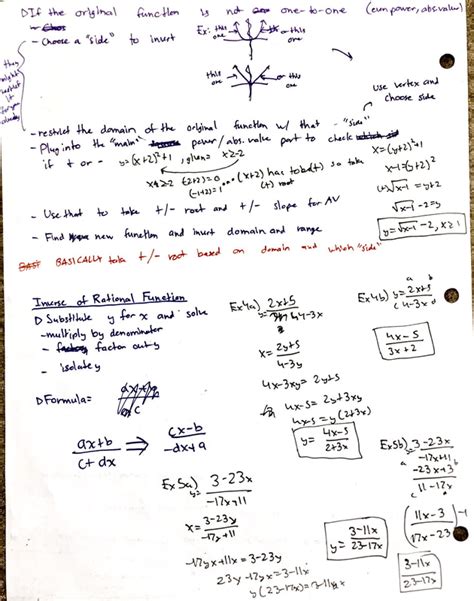 ▷If the original function is not one-to-one (even power, abs. value)
- Choose a "side" to invert Ex: this one or this one
they might restrict it for you already
this one this one
use vertex and choose side
- restrict the domain of the original function w/ that "side"
- Plug into the "main" power/abs. value part to check
if + or - y=(x+2)²+1, given x≥-2
x=(y+2)²+1
x-1=(y+2)²
(±)√x-1 = y+2
√x-1 -2 = y
y=√x-1 -2, x≥1
(-2+2)=0 (-1+2)=1 ... (x+2) has to be (+) so take (+) root
- Use that to take +/- root and +/- slope for AV
- Find new function and invert domain and range
BASICALLY take +/- root based on domain and which "side"
Inverse of Rational Function
▷ Substitute y for x and solve
- multiply by denominator
- factor out y
- isolate y
▷Formula=
ax+b / c+dx ⟹ cx-b / -dx+a
Ex4a) 2x+5 / 4-3x
x= 2y+5 / 4-3y
4x-3xy= 2y+5
4x-5= 2y+3xy
4x-5=y(2+3x)
y= 4x-5 / 2+3x
Ex4b) y= 2x+5 / 4-3x
a b
c d
4x-5 / 3x+2
Ex5a) y= 3-23x / -17x+11
x= 3-23y / -17y+11
-17xy+11x=3-23y
23y-17yx=3-11x
y(23-17x)=3-11x
y= 3-11x / 23-17x
Ex5b) 3-23x / -17x+11
a -23x+3 b
c 11-17x d
(11x-3 / 17x-23) -1
3-11x / 23-17x